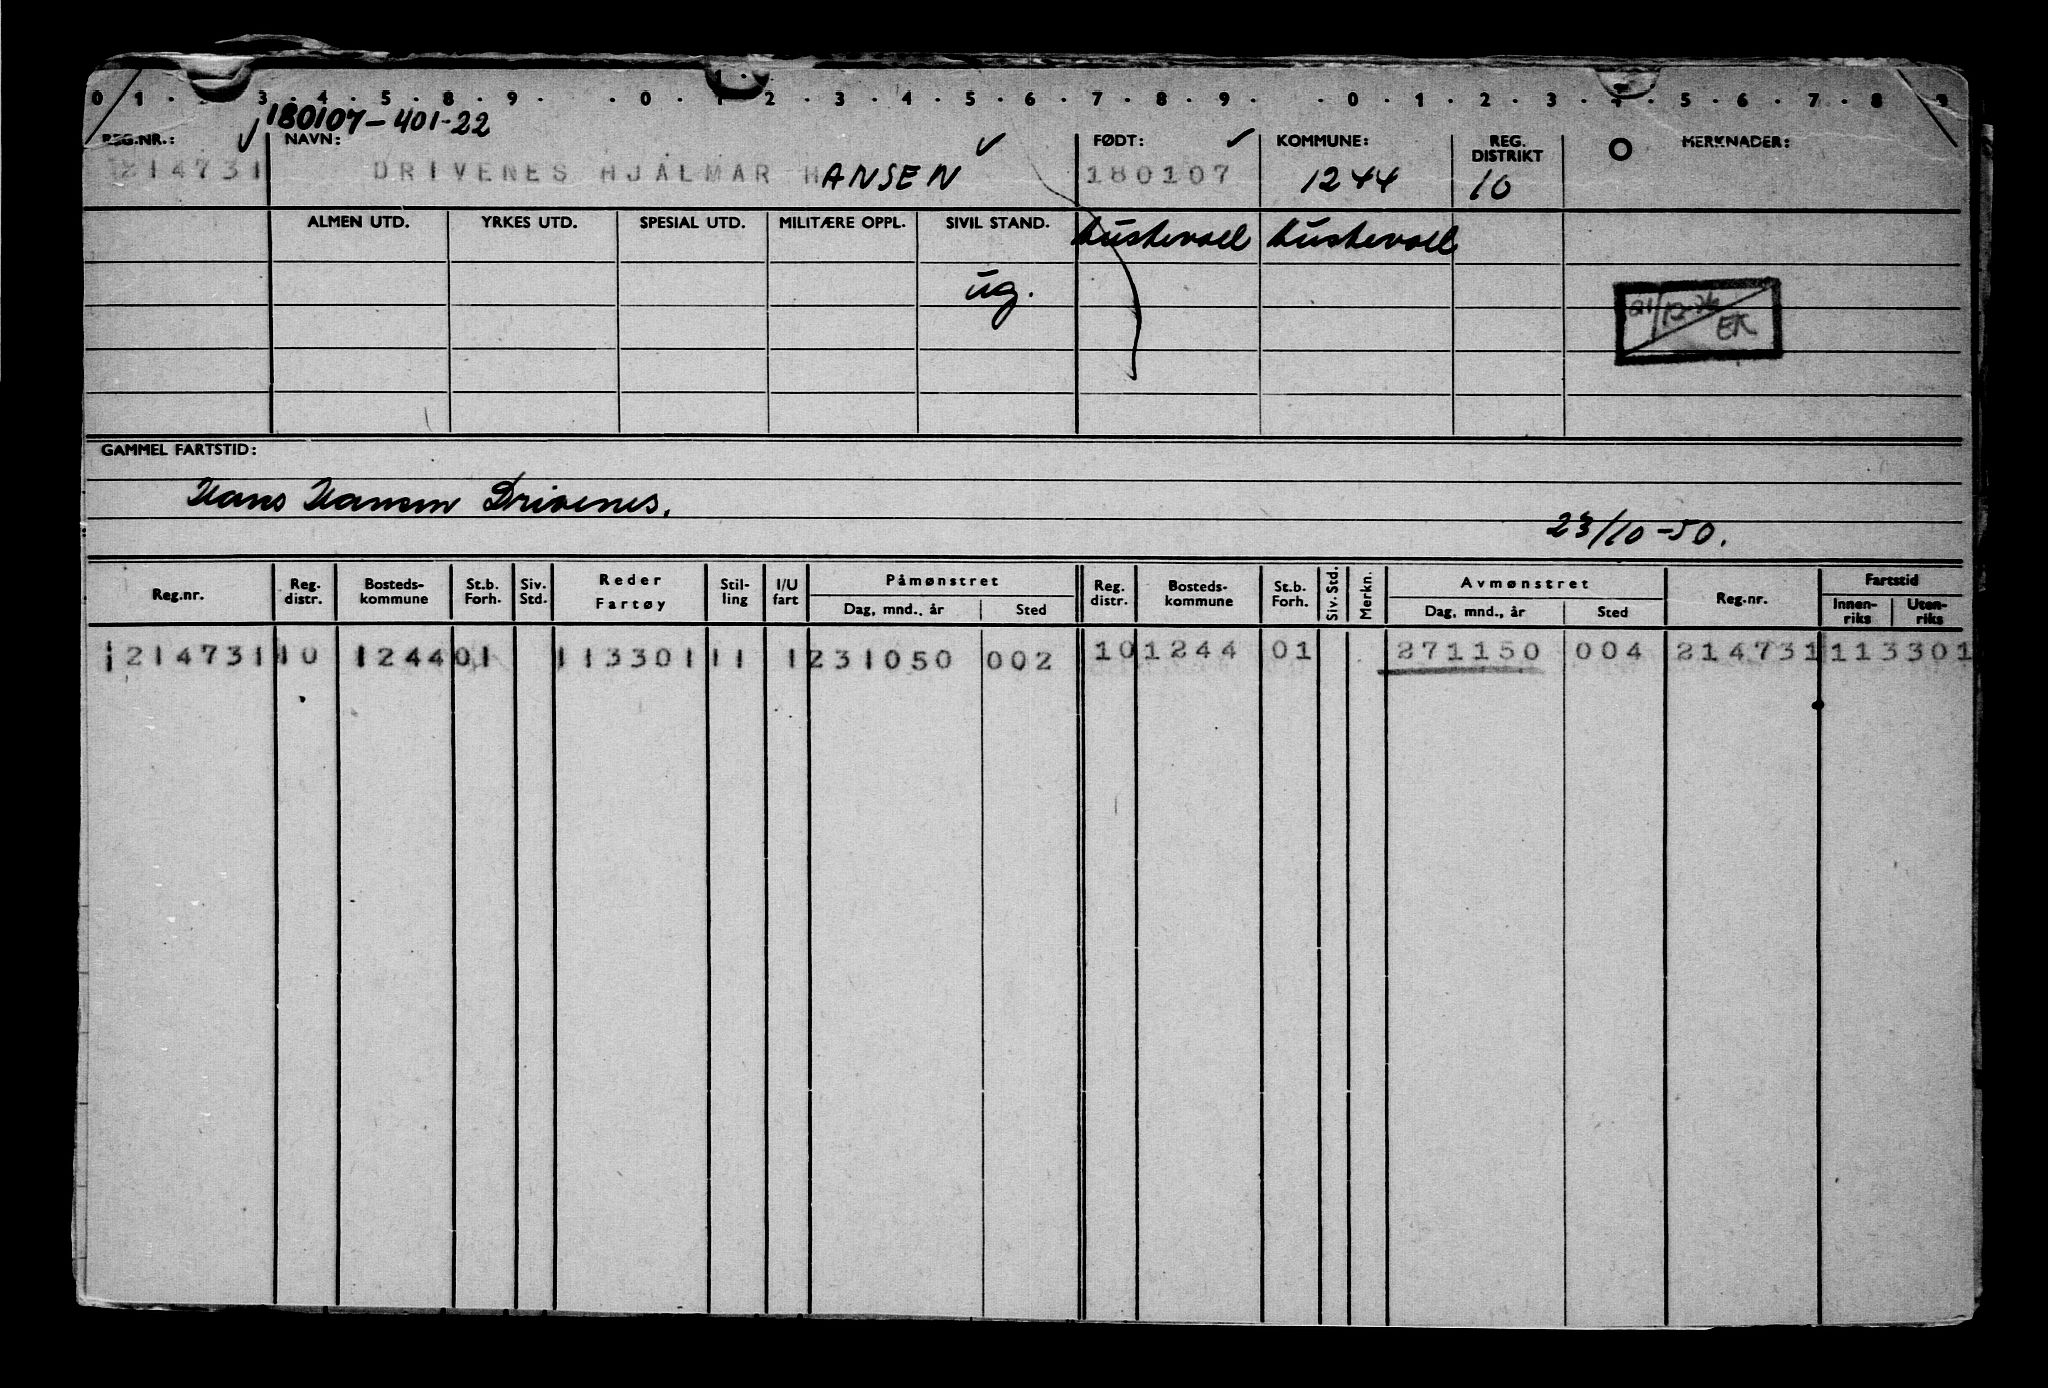 0 1 . 2 . 3 . 4 . 5 . 8 . 9 . . 0 . 1 . 2 . 3 . 4 . 5 . 6 . 7 . 8 . 9 . . 0 . 1 . 2 . 3 . 4 . 5 . 6 . 7 . 8 9
180107-401-22
REG.NR.: NAVN: FØDT: KOMMUNE: REG. DISTRIKT MERKNADER:
214731 DRIVENES HJALMAR HANSEN 180107 1244 10
ALMEN UTD. YRKES UTD. SPESIAL UTD. MILITÆRE OPPL. SIVIL STAND. Austevoll Austevoll
ug.
EK
GAMMEL FARTSTID:
Hans Hansen Drivenes.
23/10-50.
Reg.nr. Reg. distr. Bosteds-kommune St.b. Forh. Siv. Std. Reder Fartøy Stil-ling I/U fart Påmønstret Dag, mnd., år Sted Reg. distr. Bosteds-kommune St.b. Forh. Siv. Std. Merkn. Avmønstret Dag, mnd., år Sted Reg.nr. Fartstid Innen-riks Uten-riks
214731 10 1244 01 113301 11 1 231050 002 10 1244 01 271150 004 214731 113301